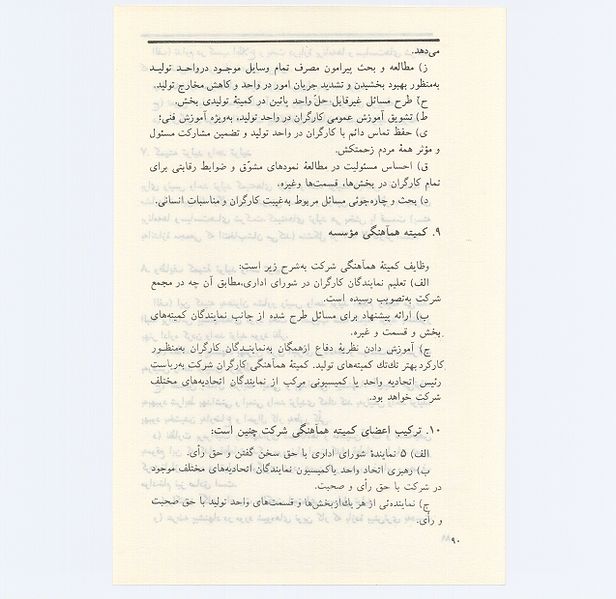 می‌دهد.
ز) مطالعه و بحث پیرامون مصرف تمام وسایل موجود درواحد تولید
به‌منظور بهبود بخشیدن و تشدید جریان امور در واحد و کاهش مخارج تولید.
ح) طرح مسائل غیرقابل حلّ واحد پائین در کمیتهٔ تولیدی بخش.
ط) تشویق آموزش عمومی کارگران در واحد تولید، به‌ویژه آموزش فنی؛
ی) حفظ تماس دائم با کارگران در واحد تولید و تضمین مشارکت مسئول
و مؤثر همهٔ مردم زحمتکش.
ق) احساس مسئولیت در مطالعهٔ نمودهای مشوّق و ضوابط رقابتی برای
تمام کارگران در بخش‌ها، قسمت‌ها وغیره.
د) بحث و چاره‌جوئی مسائل مربوط به‌غیبت کارگران و مناسبات انسانی.
۹. کمیته هم‌آهنگی مؤسسه
وظایف کمیتهٔ هم‌آهنگی شرکت به‌شرح زیر است:
الف) تعلیم نمایندگان کارگران در شورای اداری،مطابق آن چه در مجمع
شرکت به‌تصویب رسیده است.
ب) ارائه پیشنهاد برای مسائل طرح شده از جانب نمایندگان کمیته‌های
بخش و قسمت و غیره.
ج) آموزش دادن نظریهٔ دفاع ازهمگان به‌نمایندگان کارگران به‌منظور
کارکرد بهتر تك‌تك کمیته‌های تولید. کمیتهٔ هم‌آهنگی کارگران شرکت به‌ریاست
رئیس اتحادیه واحد یا کمیسیونی مرکب از نمایندگان اتحادیه‌های مختلف
شرکت خواهد بود.
۱۰. ترکیب اعضای کمیته هم‌آهنگی شرکت چنین است:
الف) ۵ نمایندهٔ شورای اداری با حق سخن گفتن و حق رأی.
ب) رهبری اتحاد واحد یاکمیسیون نمایندگان اتحادیه‌های مختلف موجود
در شرکت با حق رأی و صحبت.
ج) نماینده‌ئی از هر یك‌ازبخش‌ها و قسمت‌های واحد تولید با حق صحبت
و رأی.
۹۰